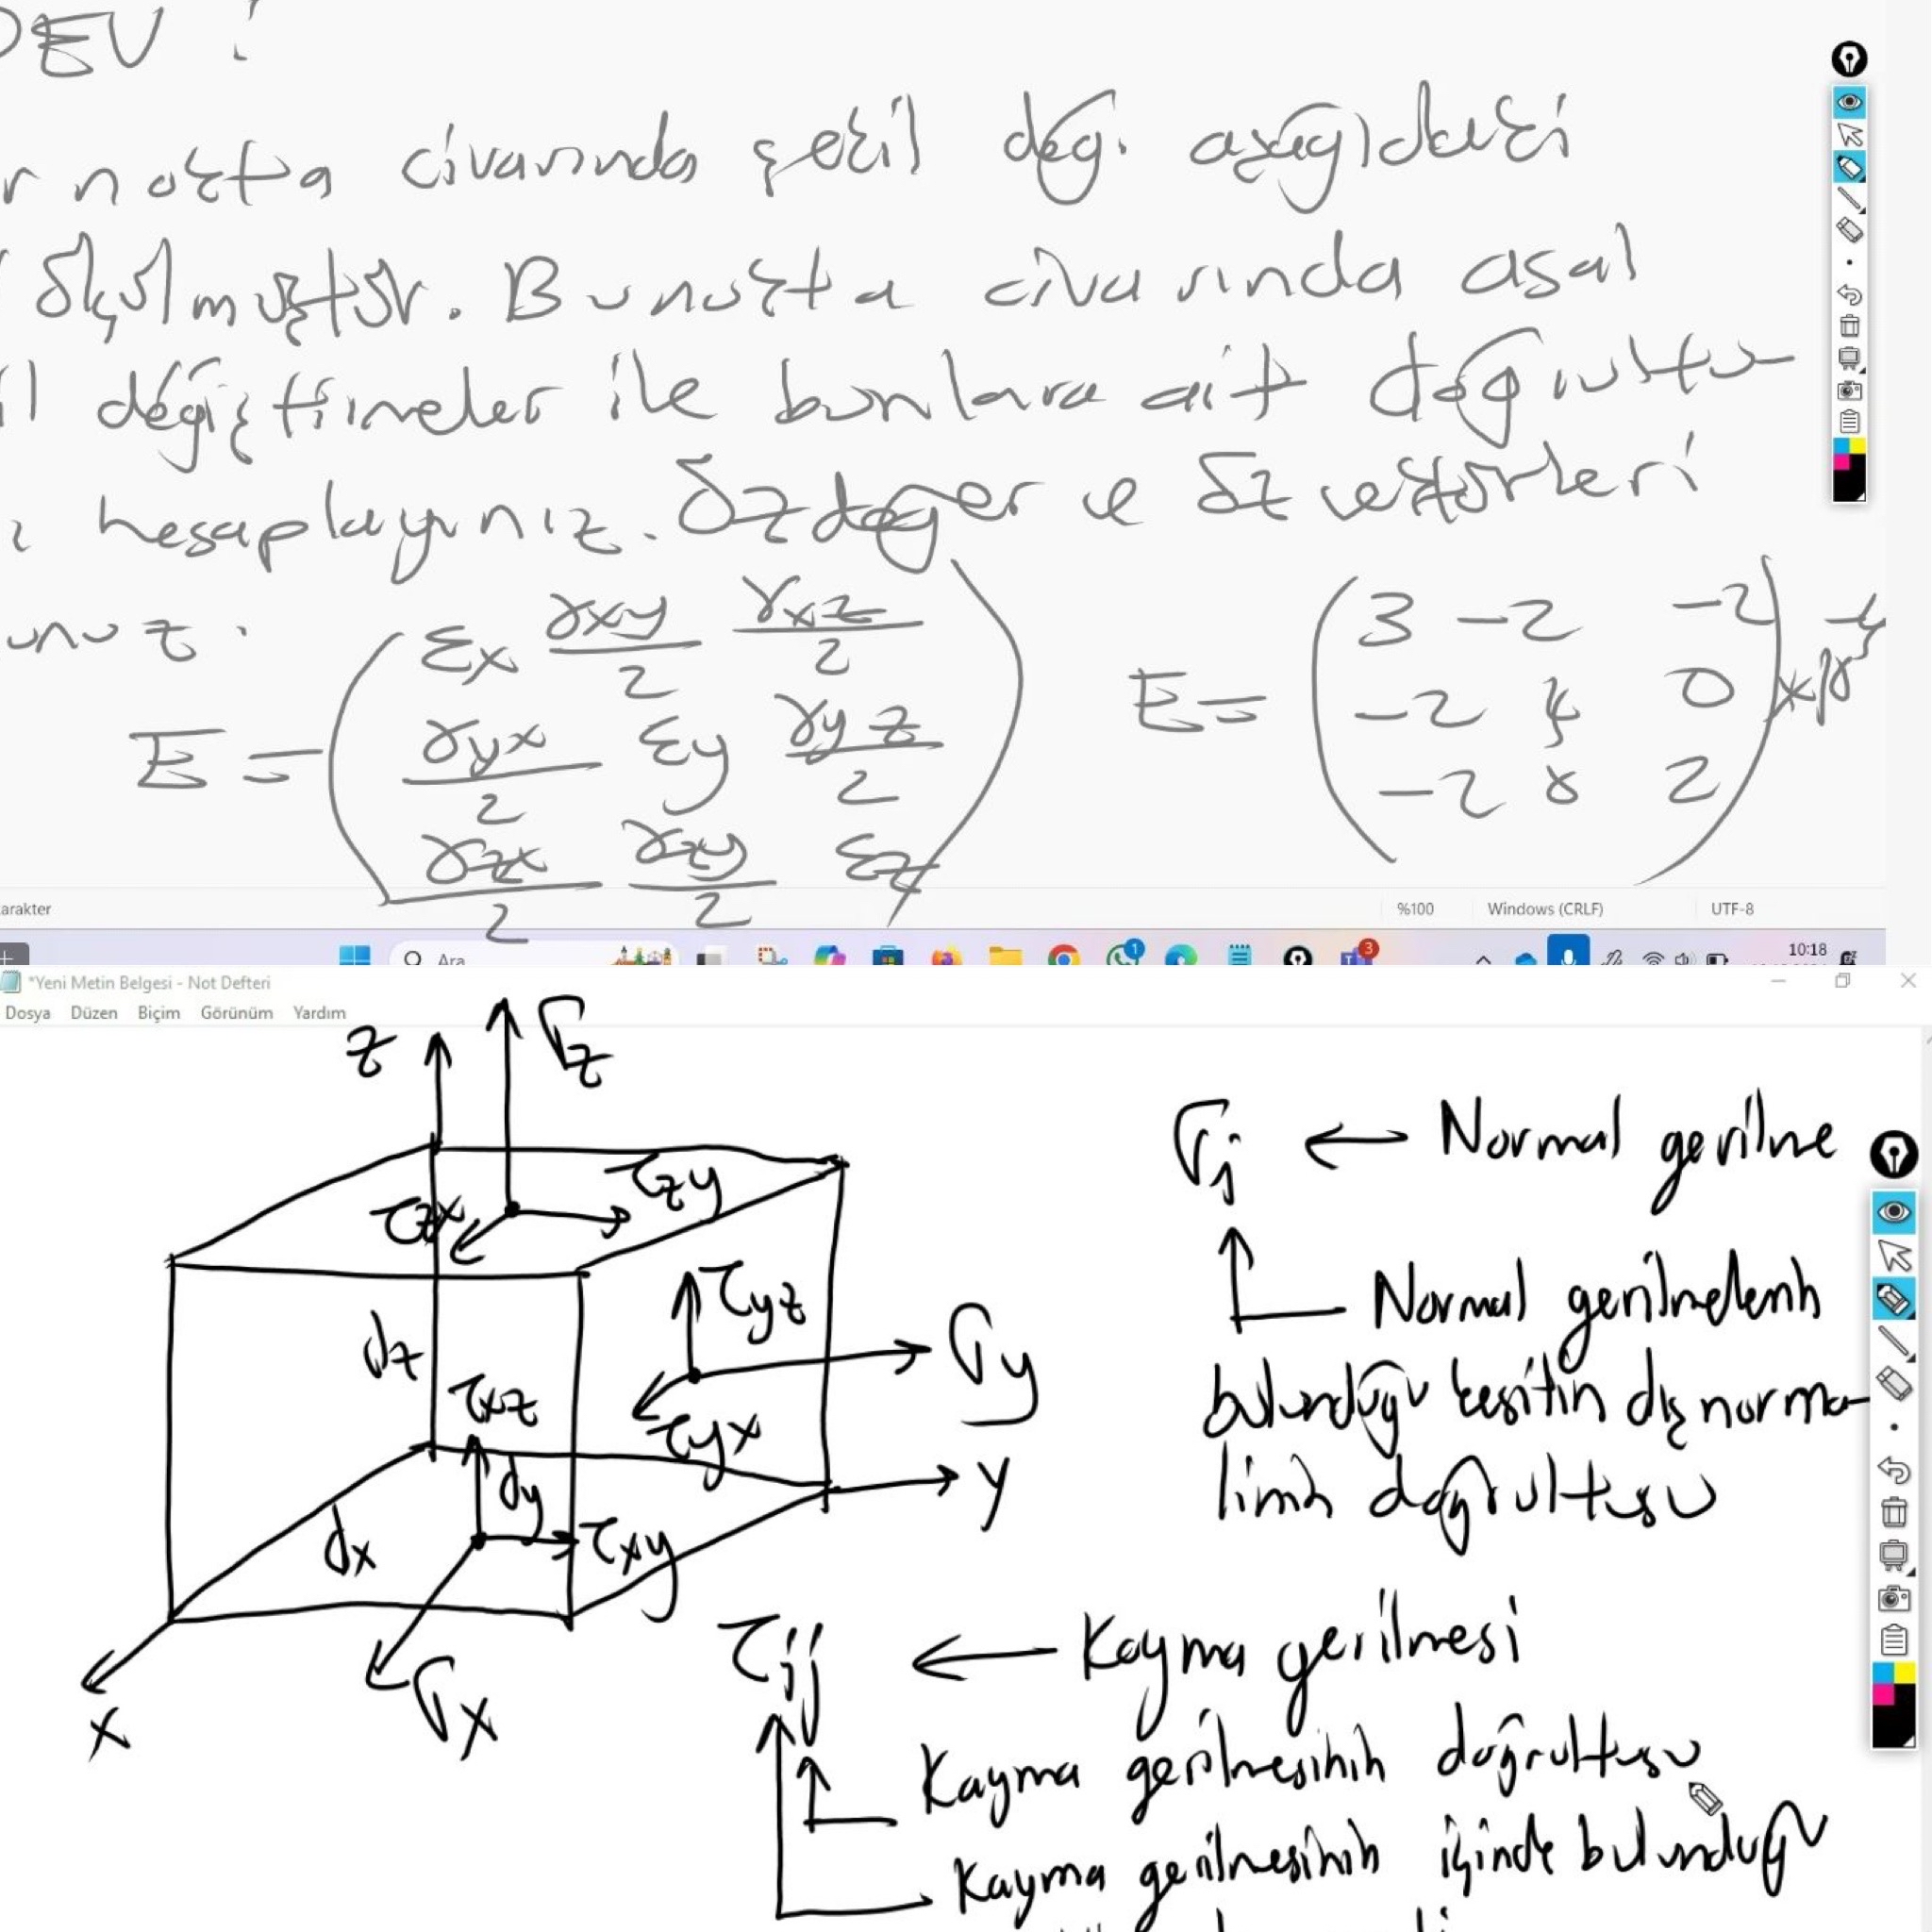 DEV !
r nokta civarında şekil değ. aşağıdaki
ölçülmüştür. Bu nokta civarında asal
il değiştirmeler ile bunlara ait doğrultu
hesaplayınız. Özdeğer ve öz vektörleri
unuz.
E = ( εx γxy/2 γxz/2
γyx/2 εy γyz/2
γzx/2 γzy/2 εz )
E = ( 3 -2 -2
-2 4 0
-2 0 2 ) *10
arakter %100 Windows (CRLF) UTF-8
Ara 1 3 10:18
*Yeni Metin Belgesi - Not Defteri
Dosya Düzen Biçim Görünüm Yardım
z σz
τzx τzy
dz τyz σy
τxz τyx
dy y
dx τxy
x σx
σi ← Normal gerilme
Normal gerilmelerin
bulunduğu kesitin dış norma-
linin doğrultusu
τij ← Kayma gerilmesi
Kayma gerilmesinin doğrultusu
Kayma gerilmesinin içinde bulunduğu